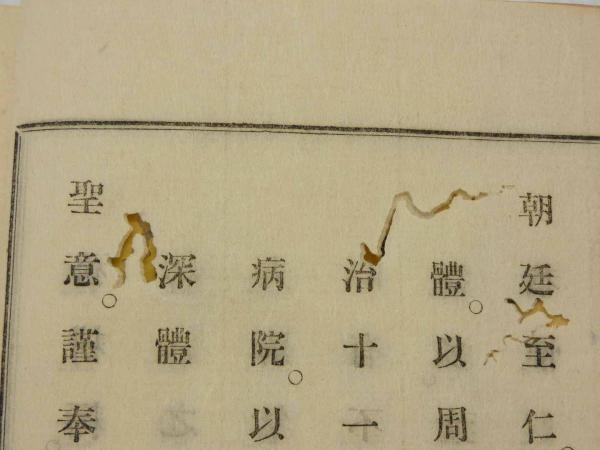 朝廷至仁。
體。以周
治十一
病院。以
深體
聖意。謹奉